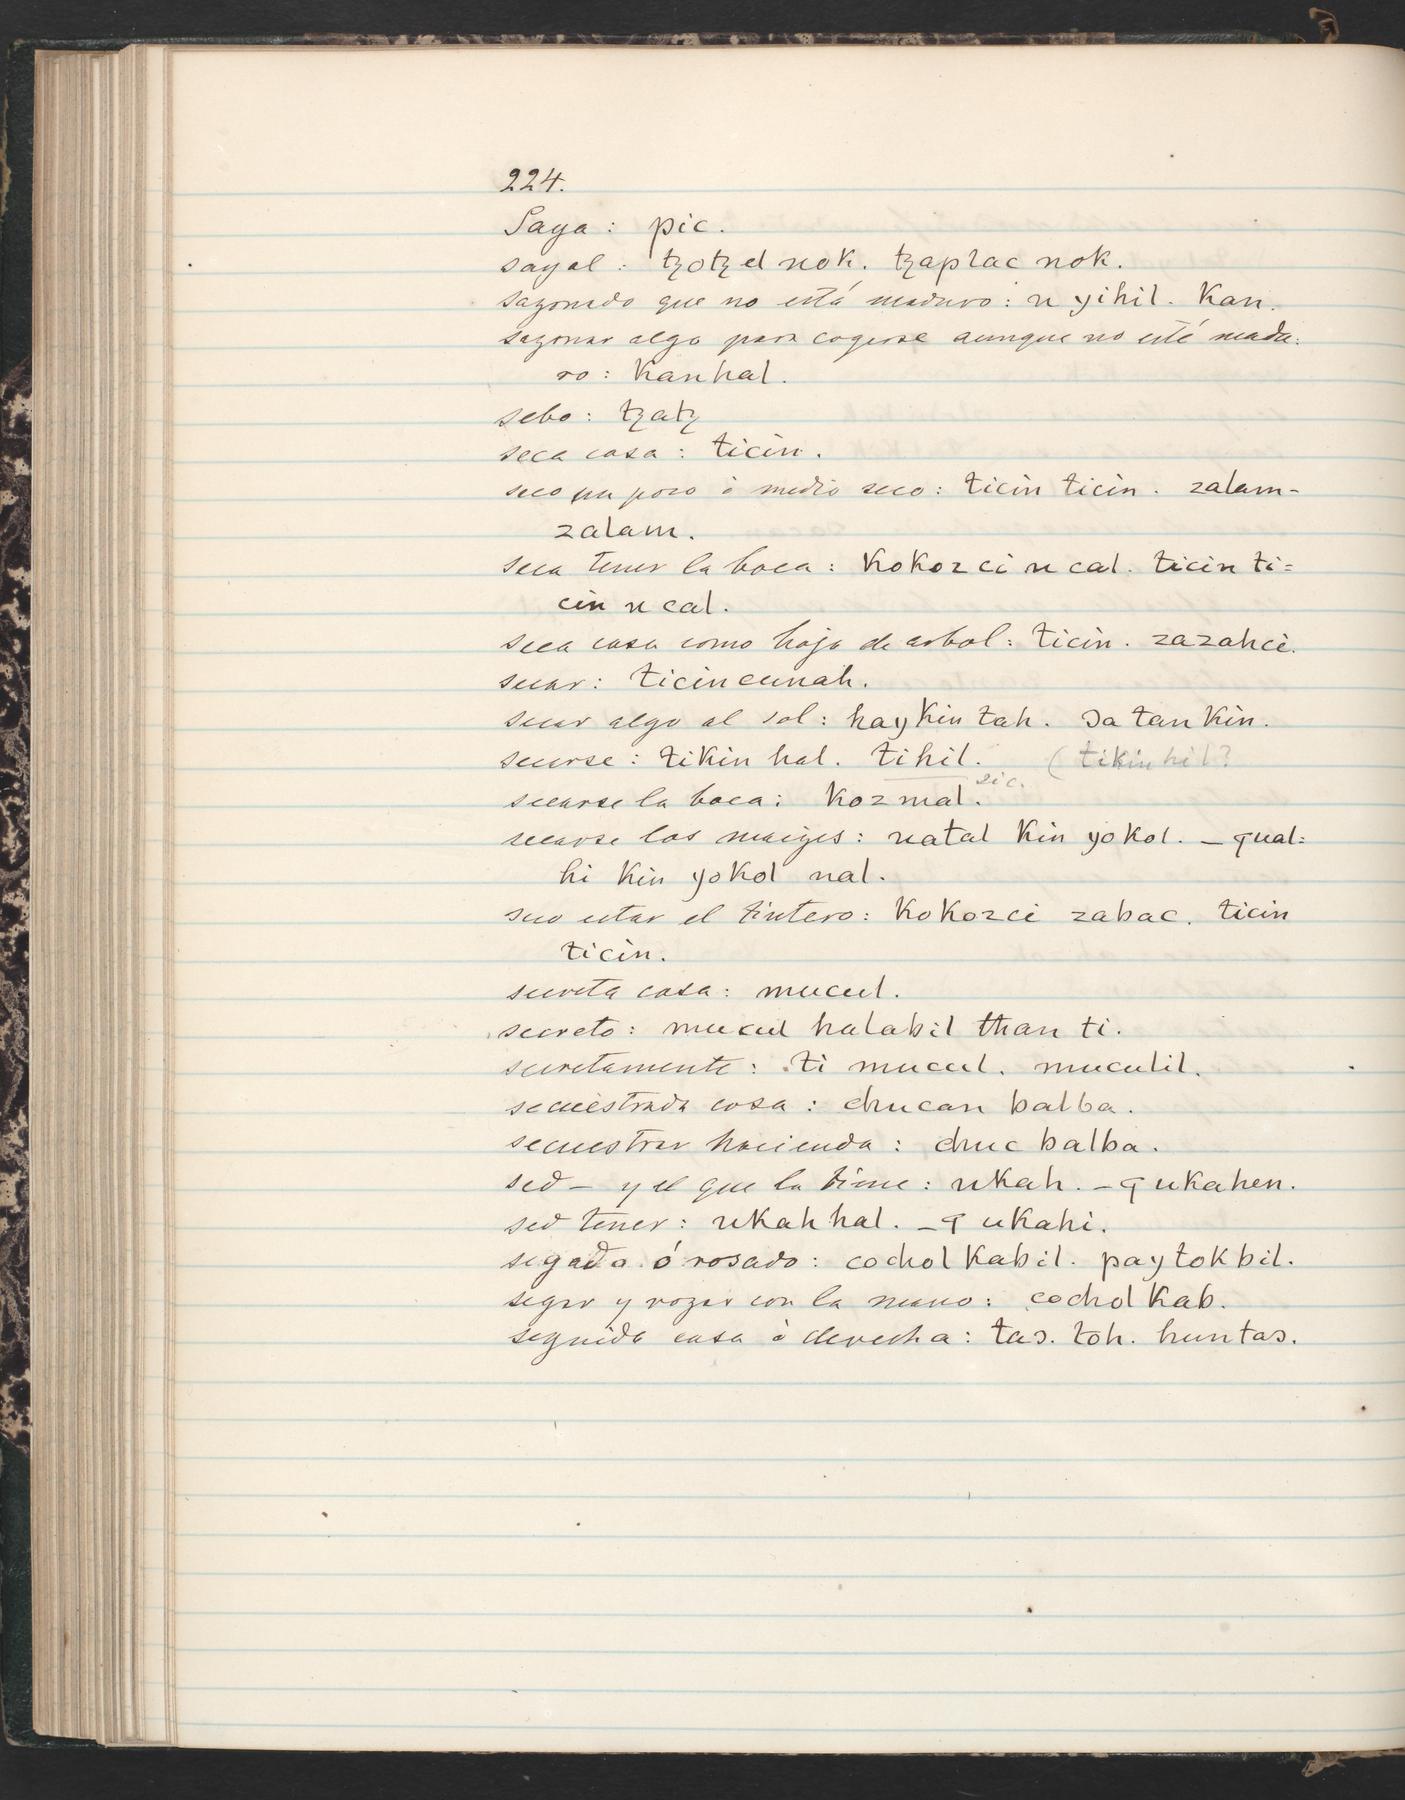 224.
Saya : pic.
sayal : tzotzel nok. tzaplac nok.
sazonado que no está maduro : u yihil. Kan.
sazonar algo para cogerse aunque no esté madu:
ro : Kanhal.
sebo : tzatz
seca cosa : ticin.
seco un poco ó medio seco : ticin ticin. zalam-
zalam.
seca tener la boca : KoKozci u cal. ticin ti=
cin u cal.
seca cosa como hoja de arbol : ticin. zazahci.
secar : ticincunah.
secar algo al sol : hayKin tah. ɔa tan Kin.
secarse : tiKin hal. tihil. (tikin hil?
sic.
secarse la boca : Kozmal.
secarse los maizes : natal Kin yoKol. — qual:
hi Kin yoKol nal.
seco estar el tintero : KoKozci zabac. ticin
ticin.
secreta cosa : mucul.
secreto : mucul halabil than ti.
secretamente : ti mucul. muculil.
secuestrada cosa : chucan balba.
secuestrar hacienda : chuc balba.
sed — y el que la tiene : uKah. — q uKahen.
sed tener : uKah hal. — q uKahi.
segado ó rosado : cochol Kabil. paytoKbil.
segar y rozar con la mano : cochol Kab.
seguida cosa ó derecha : taɔ. toh. huntaɔ.